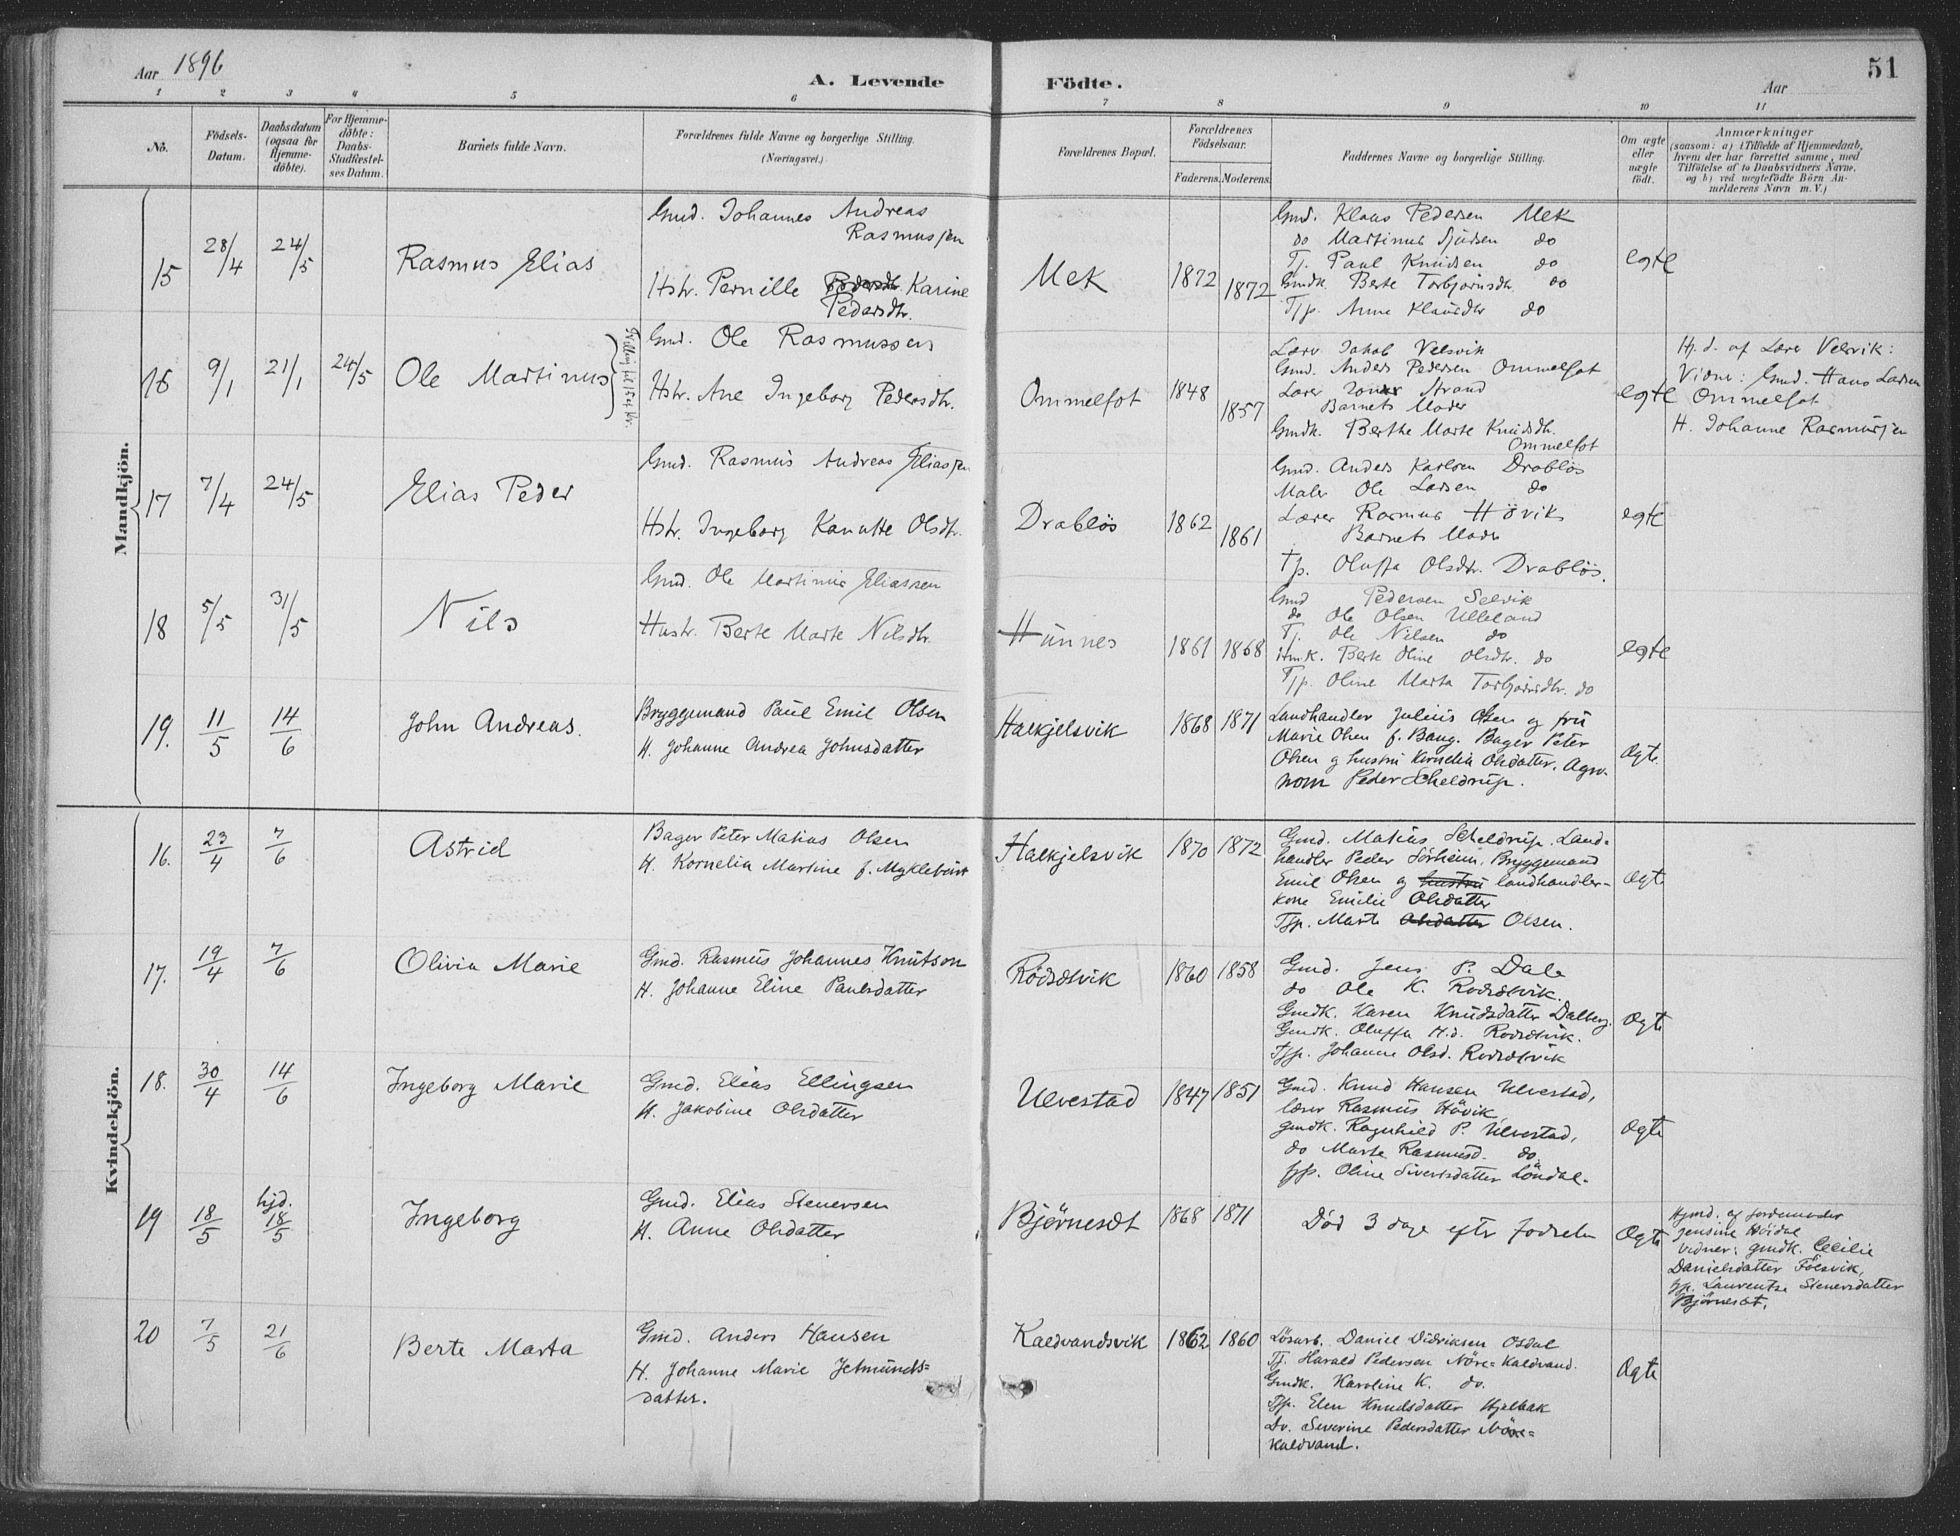 Aar 1896
A. Levende Födte.
Aar
51
1 2 3 4 5 6 7 8 9 10 11
No.
Födsels-
Datum.
Daabsdatum
(ogsaa for
Hjemme-
döbte).
For Hjemme-
döbte:
Daabs-
Stadfæstel-
ses Datum.
Barnets fulde Navn.
Forældrenes fulde Navne og borgerlige Stilling.
(Næringsvei.)
Forældrenes Bopæl.
Forældrenes
Födselsaar.
Faderens. Moderens.
Faddernes Navne og borgerlige Stilling.
Om ægte
eller
uægte
födt.
Anmærkninger
(saasom: a) i Tilfælde af Hjemmedaab,
hvem der har forrettet samme, med
Tilföielse af to Daabsvidners Navne,
og b) ved uægtefödte Börn An-
melderens Navn m. V.)
Mandkjön.
15 28/4 24/5 Rasmus Elias
Gmd. Johannes Andreas
Rasmussen
Hstr. Pernille Pedersdtr. Karine
Pedersdtr.
Mek 1872 1872
Gmd. Klaus Pedersen Mek
do Martinus Sjursen do
Tj. Paul Knudsen do
Gmdk. Berte Torbjørnsdtr. do
Tjp. Anne Klausdtr do
egte
16 9/1 21/1 24/5 Ole Martinus
Tvilling til 15 af Kv.
Gmd. Ole Rasmussen
Hstr. Ane Ingeborg Pedersdtr.
Ommelfot 1848 1857
Lærer Jakob Velsvik
Gmd. Anders Pedersen Ommelfot
Lærer Strand
Barnets Moder
Gmdk. Berthe Marte Knudsdtr.
Ommelfot
egte
Hj.d. af Lærer Velsvik:
Vidne: Gmd. Hans Larsen
Ommelfot
H. Johanne Rasmussen
17 7/4 24/5 Elias Peder
Gmd. Rasmus Andreas Eliassen
Hstr. Ingeborg Kanutte Olsdtr.
Drabløs 1862 1861
Gmd. Anders Karlsen Drabløs
Maler Ole Larsen do
Lærer Rasmus Hövik
Barnets Moder
Tjp. Oluffa Olsdtr. Drabløs.
egte
18 5/5 31/5 Nils
Gmd. Ole Martinus Eliassen
Hustr. Berte Marte Nilsdtr.
Hunnes 1861 1868
Gmd Pedersen Selvik
do Ole Olsen Ulleland
Tj. Ole Nilsen do
Hmk. Berte Oline Olsdtr. do
Tjp. Oline Marta Torbjørnsdtr. do
egte
19. 11/5 14/6 John Andreas.
Bryggemand Paul Emil Olsen
H. Johanne Andrea Johnsdatter
Halkjelsvik 1868 1871
Landhandler Julius Olsen og fru
Marie Olsen f. Bang. Bager Peter
Olsen og hustru Kornelia Olsdatter. Agro-
nom Peder Scheldrup.
Ogte.
Kvindekjön.
16. 23/4 7/6 Astrid
Bager Peter Matias Olsen
H. Kornelia Martine f. Myklebust
Halkjelsvik 1870 1872
Gmd. Matias Scheldrup. Land=
handler Peder Sörheim. Bryggemand
Emil Olsen og hustru landhandler=
kone Emilie Olsdatter
Tjp. Marte Olsdatter Olsen.
Ogte
17. 19/4 7/6 Olivia Marie
Gmd. Rasmus Johannes Knutson
H. Johanne Eline Paulsdatter
Rödsetvik 1860 1858
Gmd. Jens P. Dale
do Ole K. Rodsetvik.
Gmdk. Karen Knudsdatter Dalberg.
Gmdk. Oluffa H.d. Rodsetvik.
Tjp. Johanne Olsd. Rodsetvik
Ogte
18. 30/4 14/6 Ingeborg Marie
Gmd. Elias Ellingsen
H. Jakobine Olsdatter
Ulvestad 1847 1851
Gmd. Knud Hansen Ulvestad,
lærer Rasmus Hövik
gmdk. Ragnhild P. Ulvestad,
do Marte Rasmusd. do
tjp. Oline Sivertsdatter Löndal.
Ogte
19 18/5 hjd. 18/5 Ingeborg
Gmd. Elias Stenersen
H. Anne Olsdatter
Bjørneset 1868 1871
Død 3 dage efter fødselen
Ogte
Hjmd. af Jordemoder
Jensine Höidal
vidner: gmdk. Cecilie
Danielsdatter Fölsvik,
tjp. Laurentse Stenersdatter
Bjørneset.
20 7/5 21/6 Berte Marta
Gmd. Anders Hansen
H. Johanne Marie Jetmunds=
datter.
Kaldvandsvik 1862 1860
Lösarb. Daniel Didriksen Osdal
Tj. Harald Pedersen Nöre=Kaldvand.
Gmdk. Karoline K. do.
Tjp. Elen Knudsdatter Hjelbak
Do. Severine Pedersdatter Nöre=
kaldvand.
Ogte